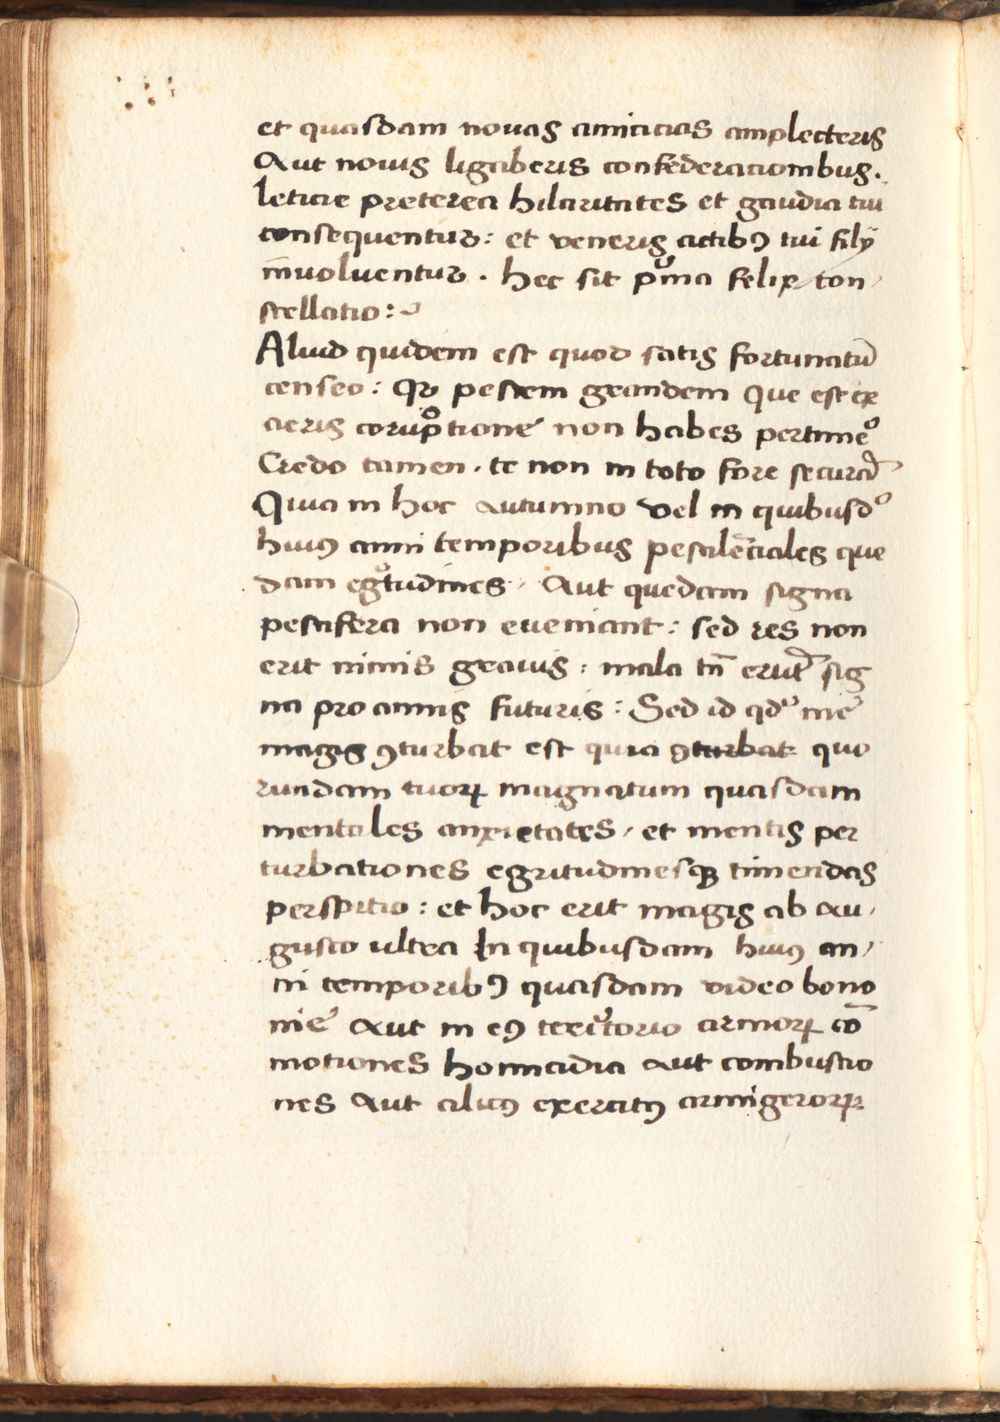 et quasdam novas amicicias amplecteris
Aut novis ligaberis confederacionibus.
leticie preterea hilaritates et gaudia tui
consequentur: et veneris actibꝯ tui filÿ
involventur. hec sit pͥma felix con
stellatio:
Aliud quidem est quod satis fortunatū
censeo: Qꝛ pestem grandem que est ex
aeris coruptione non habes pertime
Credo tamen. te non in toto fore securā
Quia in hoc autumno vel in quibusd
huiꝯ anni temporibus pestilēciales que
dam egͥtudines. Aut quedam signa
pestifera non eveniant: sed res non
erit nimis gravis: mala tn̄ erūt sig
na pro annis futuris: Sed id qd me
magis ꝯturbat est quia ꝯturbat quo
rundam tuoꝝ magnatum quasdam
mentales anxietates, et mentis per
turbationes egritudinesqꝫ timendas
perspitio: et hoc erit magis ab au
gusto ultra In quibusdam huiꝯ an
ni temporibꝯ quasdam video bono
nie aut in eꝯ terͥtorio armoꝝ cō
motiones homicidia aut combustio
nes aut aliꝯ exercitꝯ armigeroꝝ